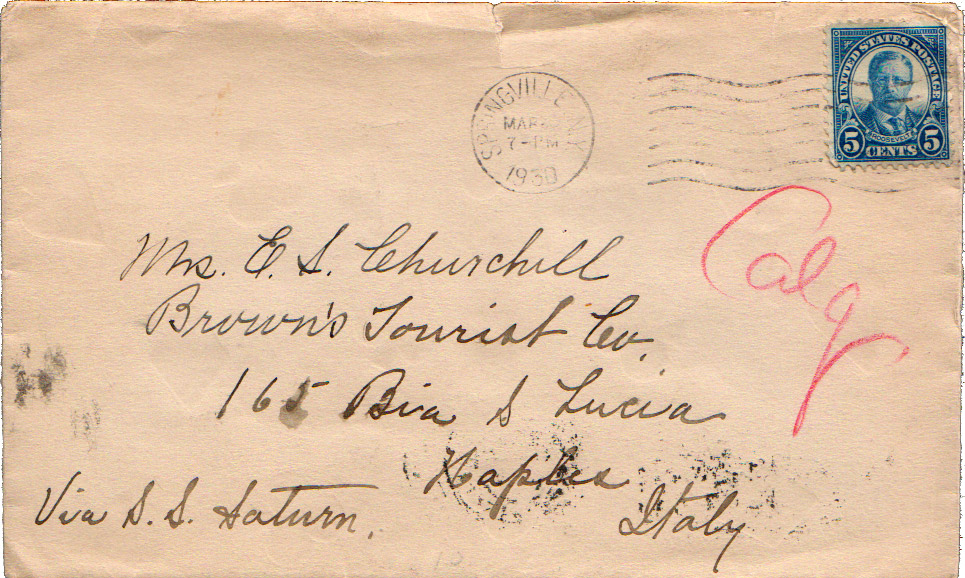 UNITED STATES POSTAGE
ROOSEVELT
5 CENTS 5
SPRINGVILLE N.Y.
MAR
7-PM
1930
Mrs. E. S. Churchill
Brown's Tourist Co.
165 Bia S Lucia
Naples
Italy
Via S.S. Saturn.